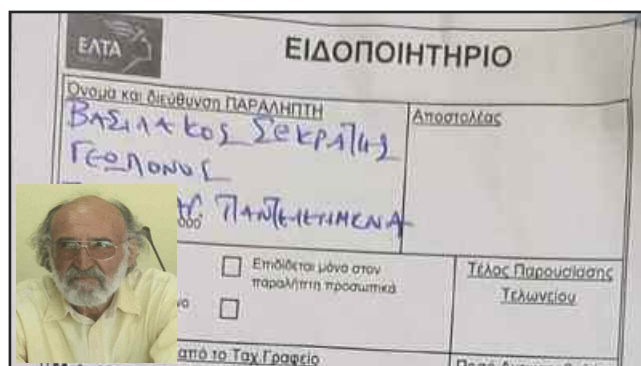 ΕΛΤΑ
ΕΙΔΟΠΟΙΗΤΗΡΙΟ
Όνομα και διεύθυνση ΠΑΡΑΛΗΠΤΗ
Αποστολέας
ΒΑΣΙΛΑΚΟΣ ΣΕΚΡΑΤΗΣ
ΓΕΩΠΟΝΟΣ
ΠΑΝΤΕΛΕΗΜΕΝΑ
Επιδίδεται μόνο στον
παραλήπτη προσωπικά
Τέλος Παρουσίασης
Τελωνείου
από το Ταχ Γραφείο